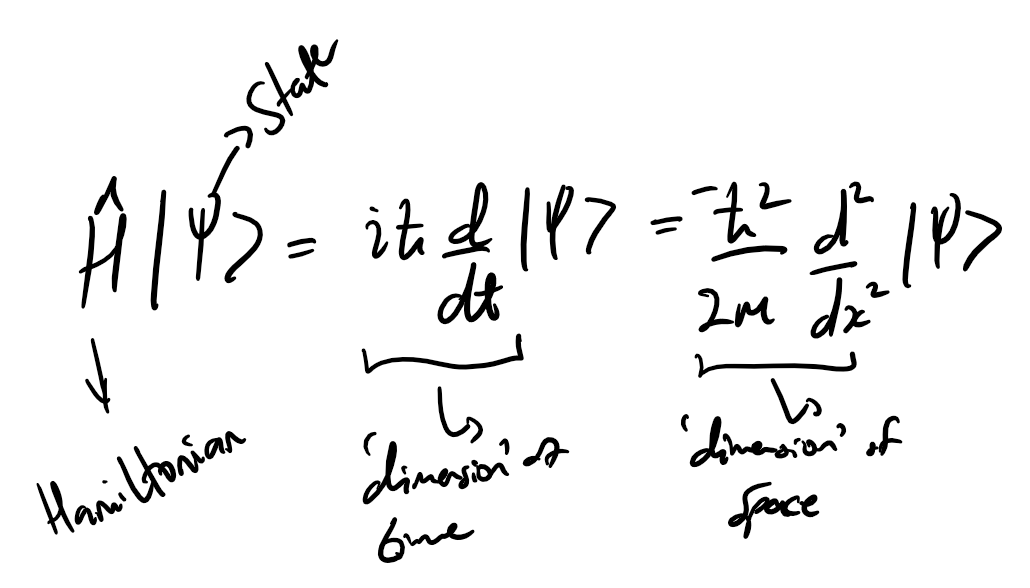 State
Ĥ|Ψ> = iħ d/dt |Ψ> = -ħ²/2m d²/dx² |Ψ>
Hamiltonian
'dimension' of
time
'dimension' of
space